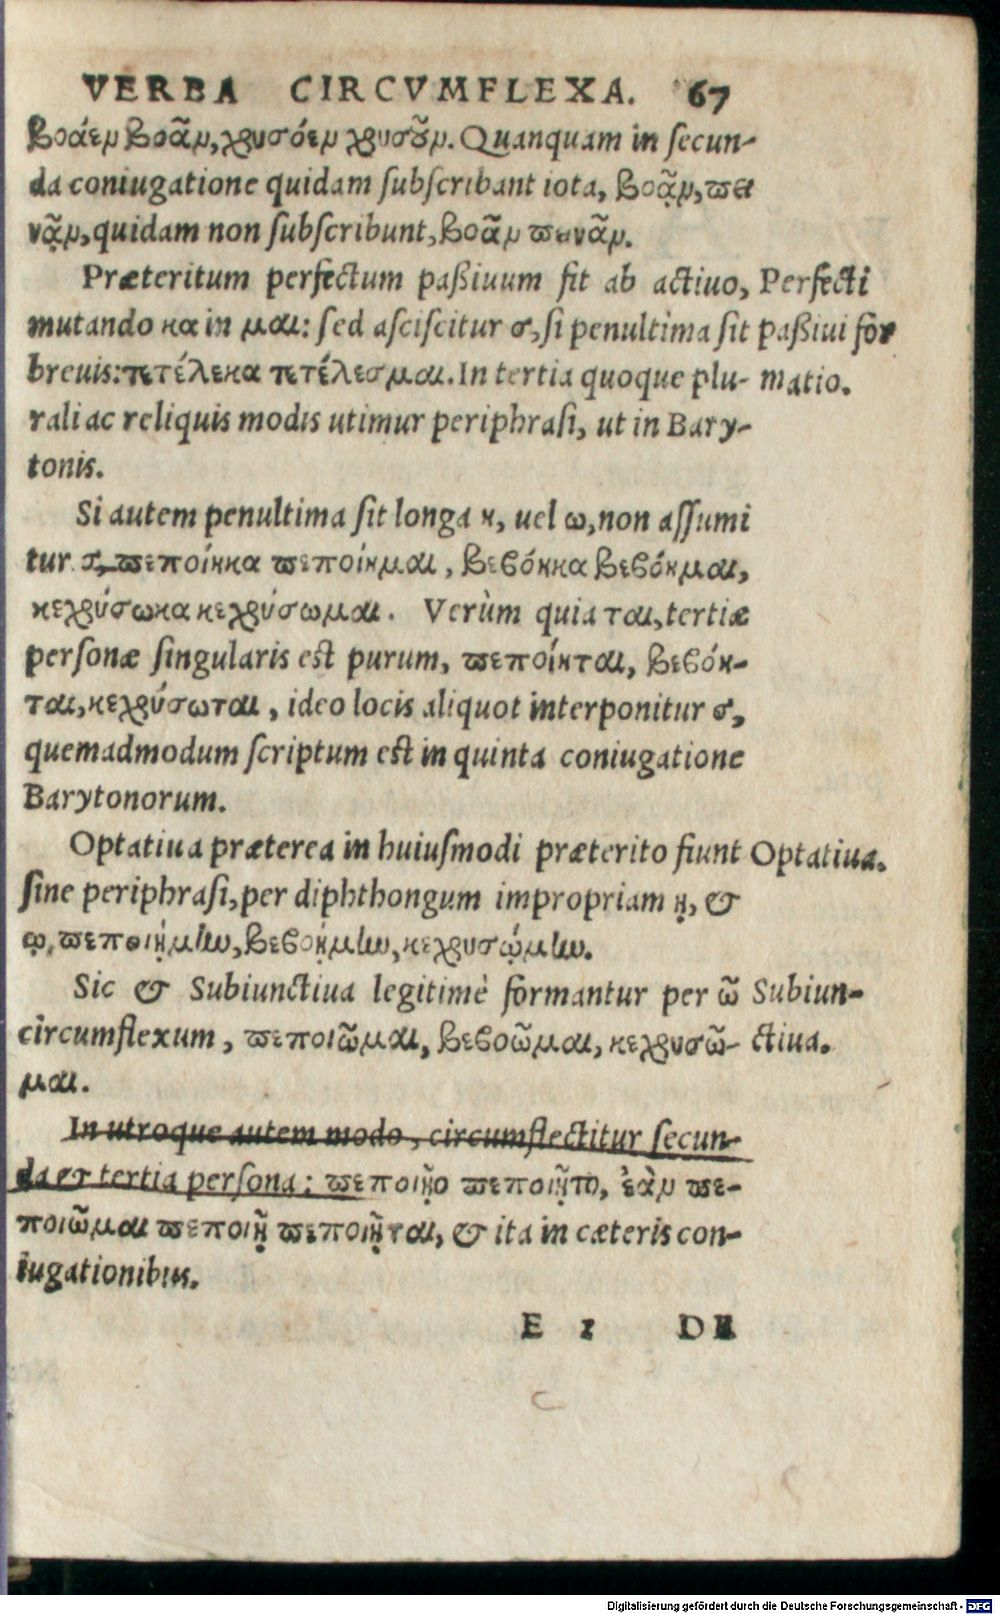 VERBA CIRCVMFLEXA. 67
βοάειν βοᾶν, χρυσόειν χρυσοῦν. Quanquam in secun-
da coniugatione quidam subscribant iota, βοᾷν, πει
νᾷν, quidam non subscribunt, βοᾶν πεινᾶν.
Præteritum perfectum paßiuum fit ab actiuo, Perfecti
mutando κα in μαι: sed asciscitur σ, si penultima sit paßiui for
breuis: τετέλεκα τετέλεσμαι. In tertia quoque plu- matio.
rali ac reliquis modis utimur periphrasi, ut in Bary-
tonis.
Si autem penultima sit longa η, uel ω, non assumi
tur σ, πεποίηκα πεποίημαι, βεβόηκα βεβόημαι,
κεχρύσωκα κεχρύσωμαι. Verùm quia ται, tertiæ
personæ singularis est purum, πεποίηται, βεβόη-
ται, κεχρύσωται, ideo locis aliquot interponitur σ,
quemadmodum scriptum est in quinta coniugatione
Barytonorum.
Optatiua præterea in huiusmodi præterito fiunt Optatiua.
sine periphrasi, per diphthongum impropriam ῃ, &
ῳ, πεποιῄμην, βεβοῄμην, κεχρυσῴμην.
Sic & Subiunctiua legitimè formantur per ῶ Subiun-
circumflexum, πεποιῶμαι, βεβοῶμαι, κεχρυσῶ- ctiua.
μαι.
In utroque autem modo, circumflectitur secun-
da et tertia persona: πεποιῇο πεποιῇτο, ἐὰν πε-
ποιῶμαι πεποιῇ πεποιῇται, & ita in cæteris con-
iugationibus.
E 2 DE
Digitalisierung gefördert durch die Deutsche Forschungsgemeinschaft - DFG